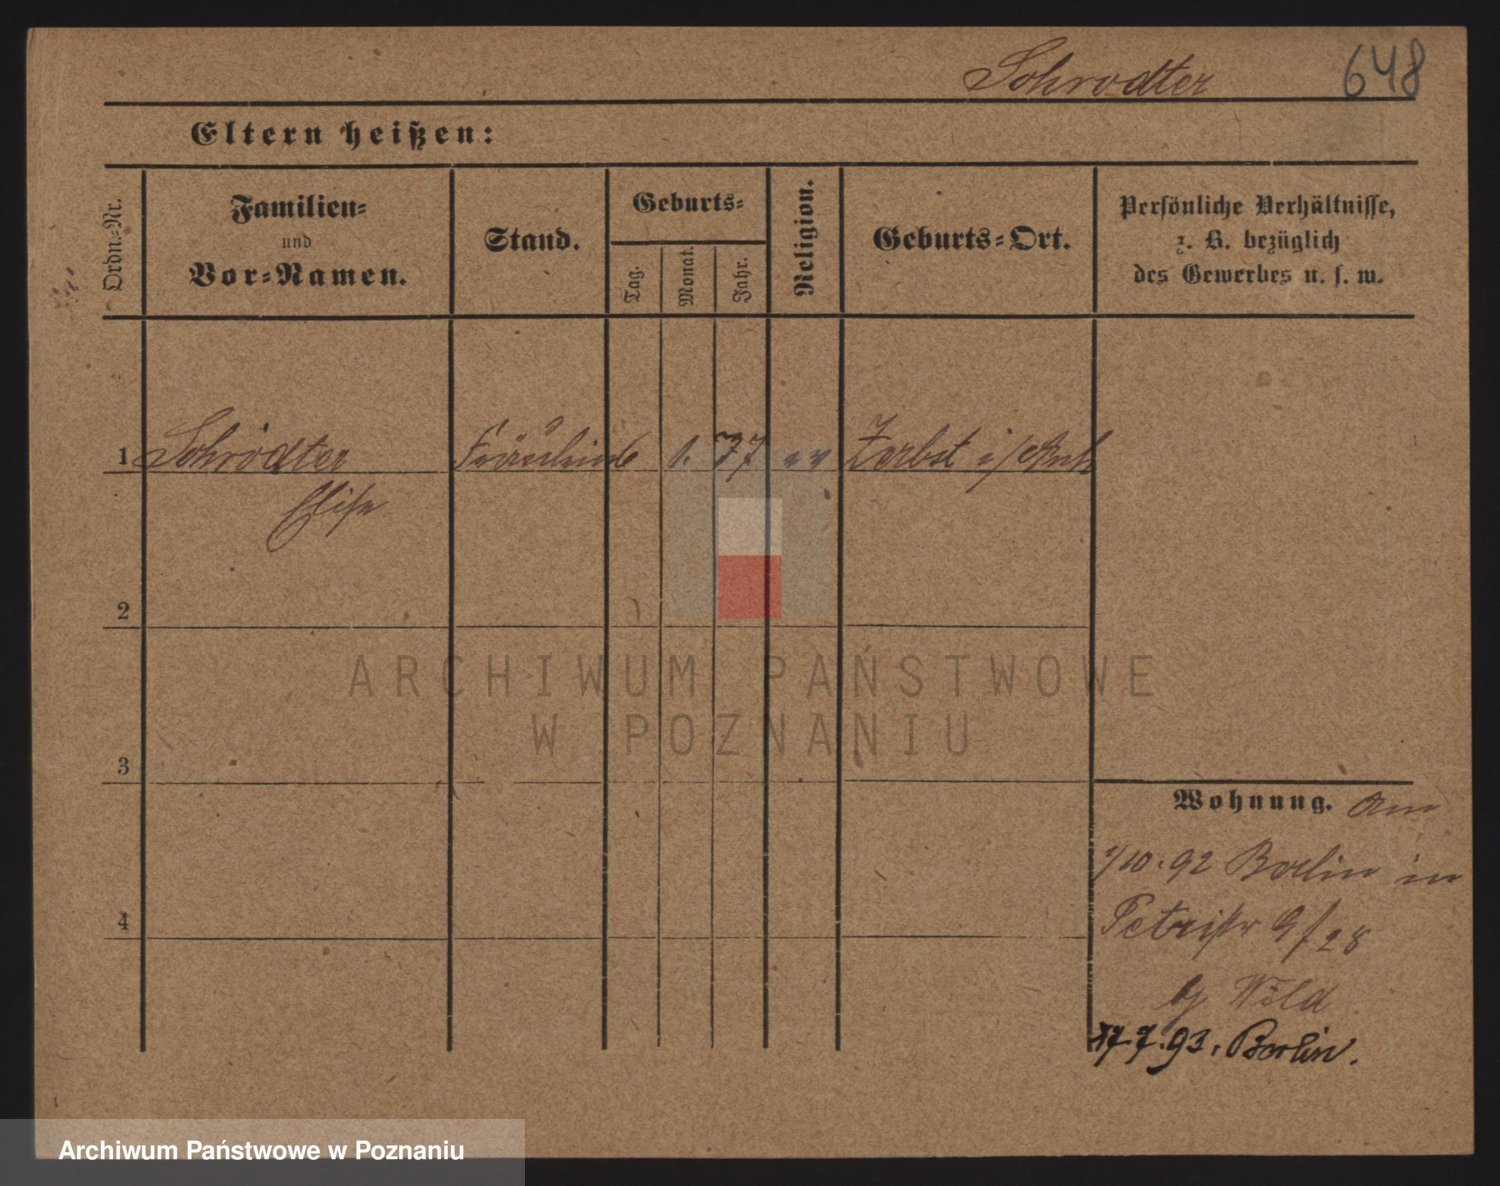 Schrodter 648
Eltern heißen:
Ordn.-Nr.
Familien-
und
Vor-Namen.
Stand.
Geburts-
Tag.
Monat.
Jahr.
Religion.
Geburts-Ort.
Persönliche Verhältnisse,
z. B. bezüglich
des Gewerbes u. s. w.
1 Schrödter Fräulein 6 1. 77 ev Zerbst i/Anh
Elise
2
3
4
ARCHIWUM PAŃSTWOWE
W POZNANIU
Wohnung. Am
1/10.92 Berlin in
Petristr 9/28
Wöld
17.7.93. Berlin.
Archiwum Państwowe w Poznaniu